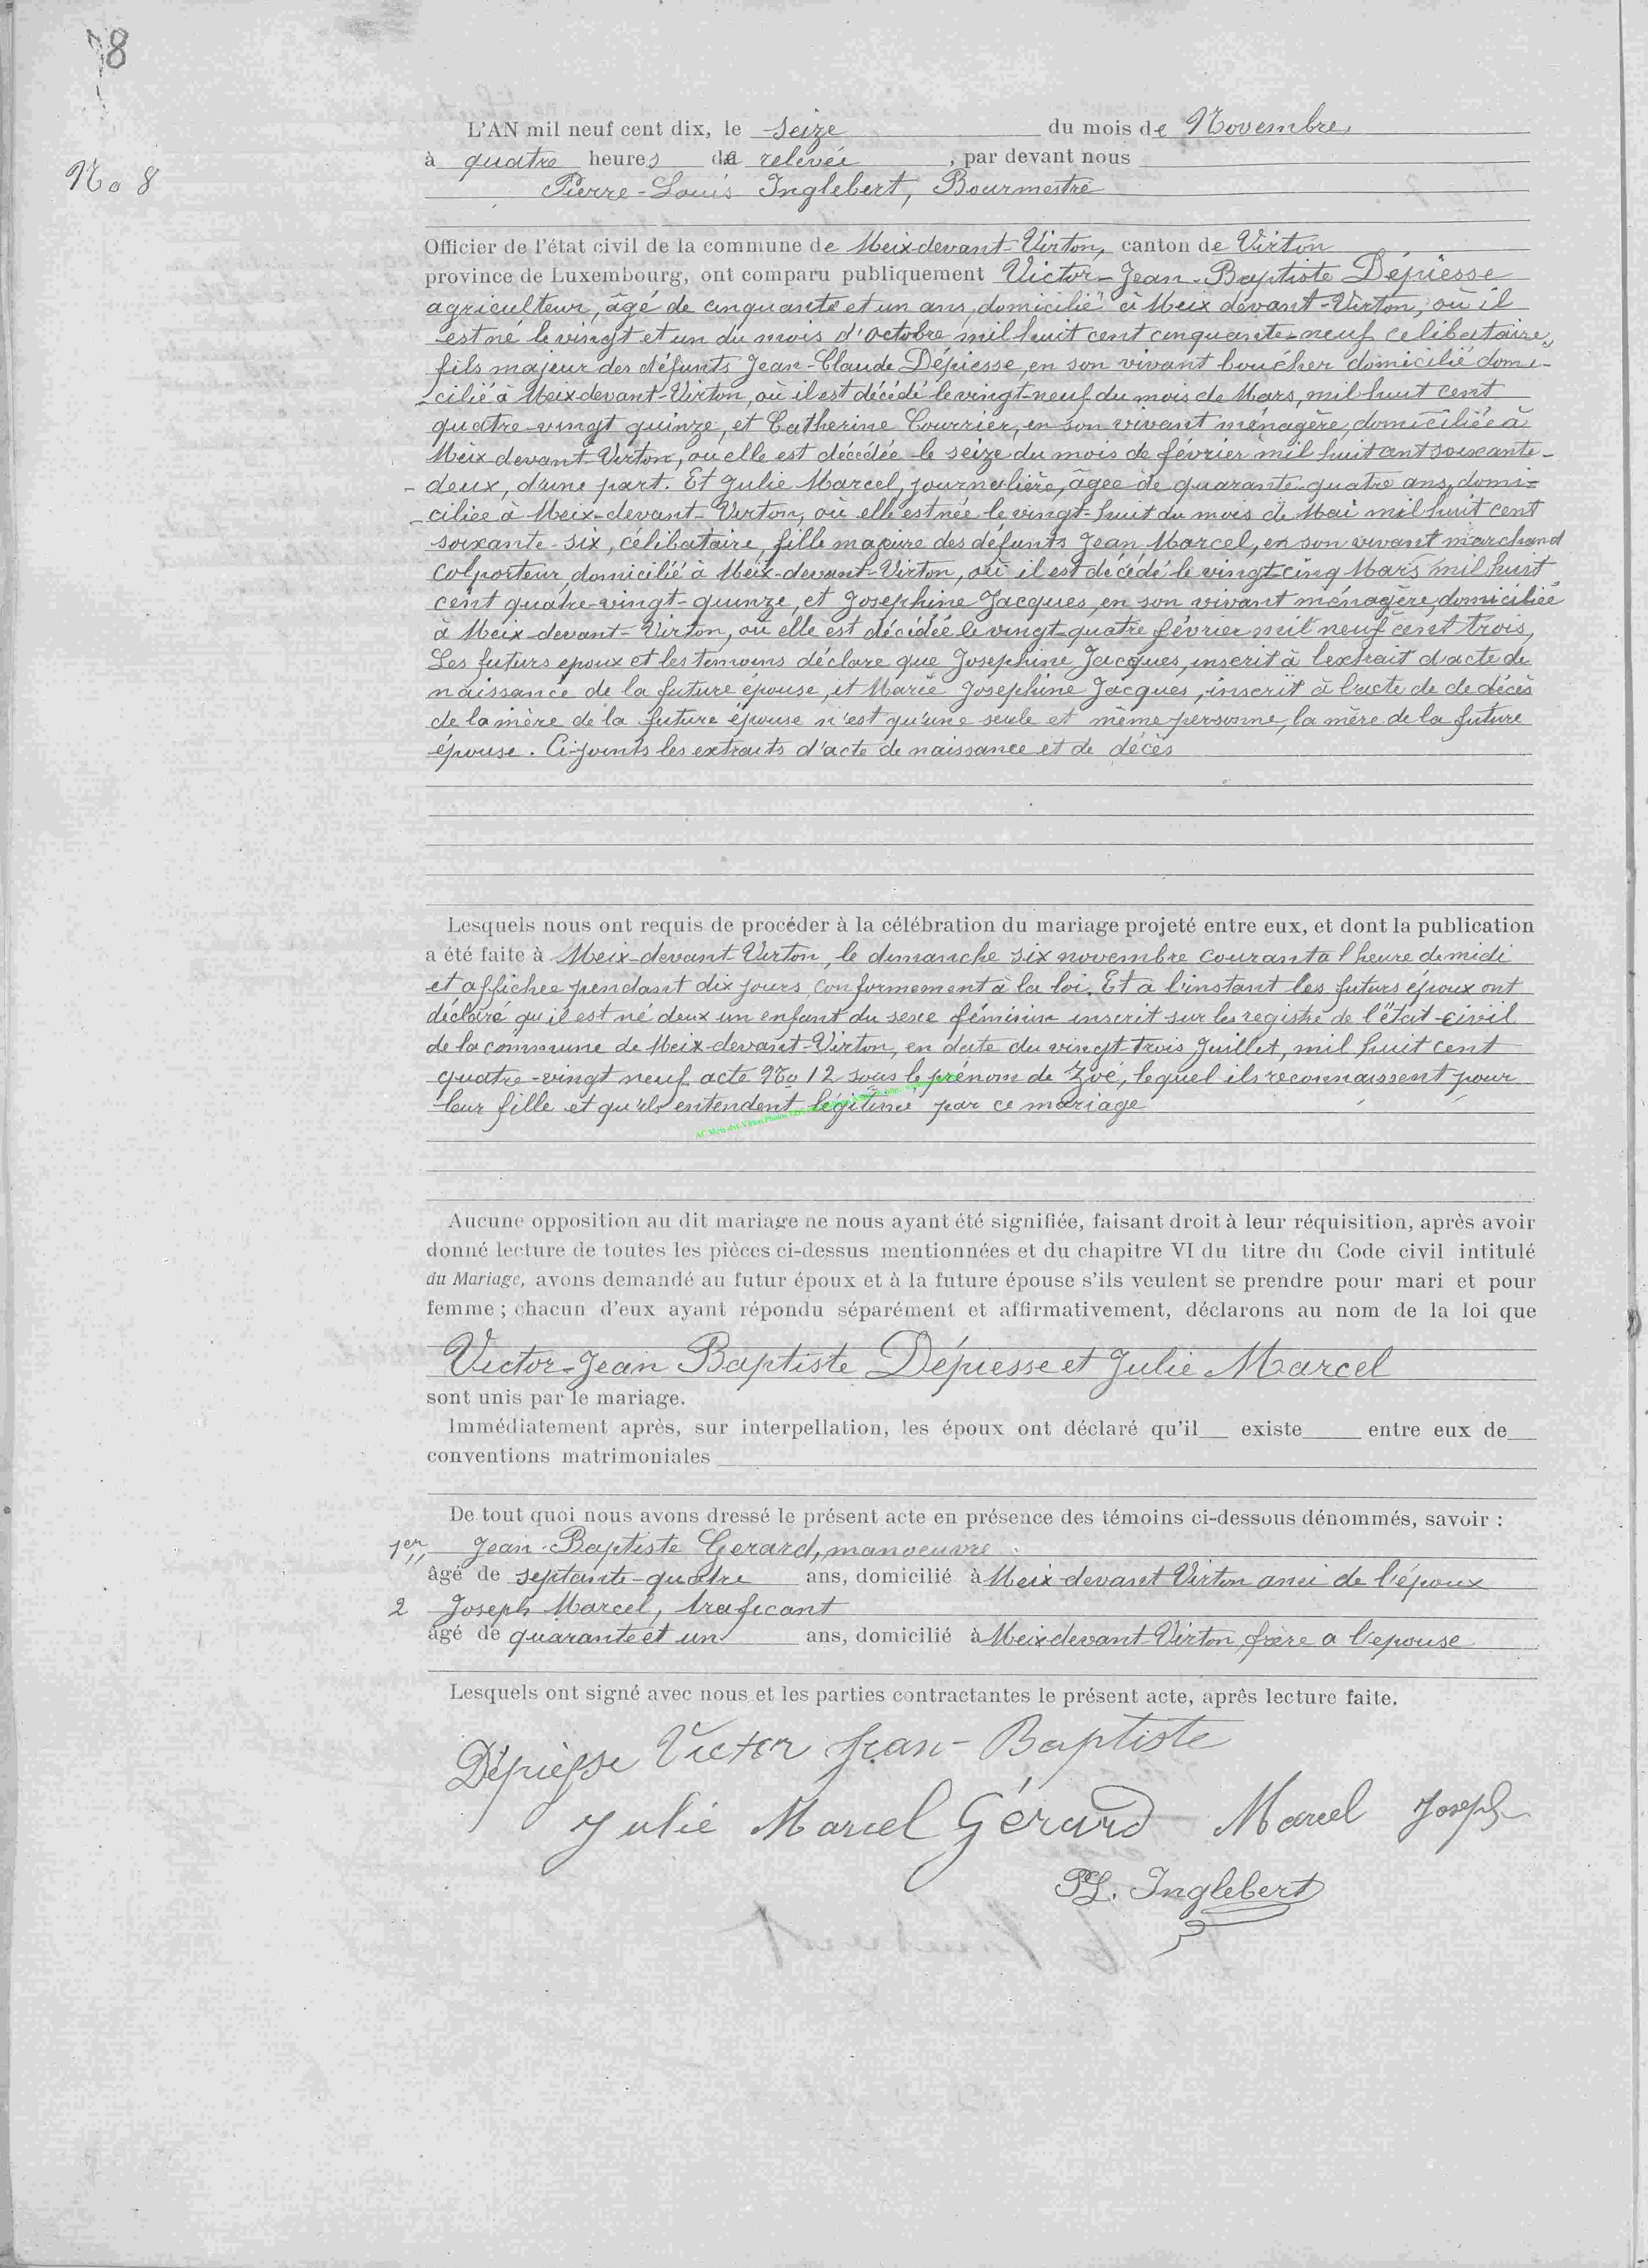 8
L'AN mil neuf cent dix, le seize du mois de Novembre,
à quatre heures de relevée, par devant nous
No 8
Pierre-Louis Inglebert, Bourmestre
Officier de l'état civil de la commune de Meix-devant-Virton, canton de Virton
province de Luxembourg, ont comparu publiquement Victor-Jean-Baptiste Dépiesse
agriculteur, âgé de cinquante et un ans, domicilié à Meix devant-Virton, où il
est né le vingt et un du mois d'octobre mil huit cent cinquante-neuf célibataire,
fils majeur des défunts Jean-Claude Dépiesse, en son vivant boucher domicilié domi-
cilié à Meix-devant-Virton, où il est décédé le vingt-neuf du mois de Mars, mil huit cent
quatre-vingt quinze, et Catherine Courrier, en son vivant ménagère, domiciliée à
Meix-devant-Virton, ou elle est décédée le seize du mois de février mil huit cent soixante-
- deux, d'une part. Et Julie Marcel, journalière, âgée de quarante-quatre ans, domi-
ciliée à Meix-devant-Virton, où elle est née le vingt-huit du mois de Mai mil huit cent
soixante-six, célibataire, fille majeure des défunts Jean Marcel, en son vivant marchand
colporteur domicilié à Meix-devant-Virton, où il est décédé le vingt-cinq Mars mil huit
cent quatre-vingt-quinze, et Joséphine Jacques, en son vivant ménagère, domiciliée
à Meix-devant-Virton, où elle est décédée le vingt-quatre février mil neuf cent trois,
Les futurs époux et les temoins déclare que Joséphine Jacques, inscrit à l'extrait d'acte de
naissance de la future épouse, et Marie Joséphine Jacques, inscrit à l'acte de de décès
de la mère de la future épouse n'est qu'une seule et même personne, la mère de la future
épouse. Ci-joints les extraits d'acte de naissance et de décès
Lesquels nous ont requis de procéder à la célébration du mariage projeté entre eux, et dont la publication
a été faite à Meix-devant-Virton, le dimanche six novembre courant à l'heure de midi
et affichée pendant dix jours conformement à la loi. Et à l'instant les futurs époux ont
déclaré qu'il est né deux un enfant du sexe féminin inscrit sur les registre de l'état-civil
de la commune de Meix-devant-Virton, en date du vingt-trois Juillet, mil huit cent
quatre-vingt neuf acte No 12 sous le prénom de Zoé, lequel ils reconnaissent pour
leur fille et qu'ils entendent légitimé par ce mariage
Aucune opposition au dit mariage ne nous ayant été signifiée, faisant droit à leur réquisition, après avoir
donné lecture de toutes les pièces ci-dessus mentionnées et du chapitre VI du titre du Code civil intitulé
du Mariage, avons demandé au futur époux et à la future épouse s'ils veulent se prendre pour mari et pour
femme ; chacun d'eux ayant répondu séparément et affirmativement, déclarons au nom de la loi que
Victor-Jean Baptiste Dépiesse et Julie Marcel
sont unis par le mariage.
Immédiatement après, sur interpellation, les époux ont déclaré qu'il existe entre eux de
conventions matrimoniales
De tout quoi nous avons dressé le présent acte en présence des témoins ci-dessous dénommés, savoir :
1er Jean-Baptiste Gerard, manoeuvre
âgé de septante-quatre ans, domicilié à Meix devant Virton ami de l'époux
2 Joseph Marcel, traficant
âgé de quarante et un ans, domicilié à Meix devant Virton, frère a l'epouse
Lesquels ont signé avec nous et les parties contractantes le présent acte, après lecture faite.
Dépiesse Victor Jean-Baptiste
Julie Marcel Gérard Marcel Joseph
PL. Inglebert